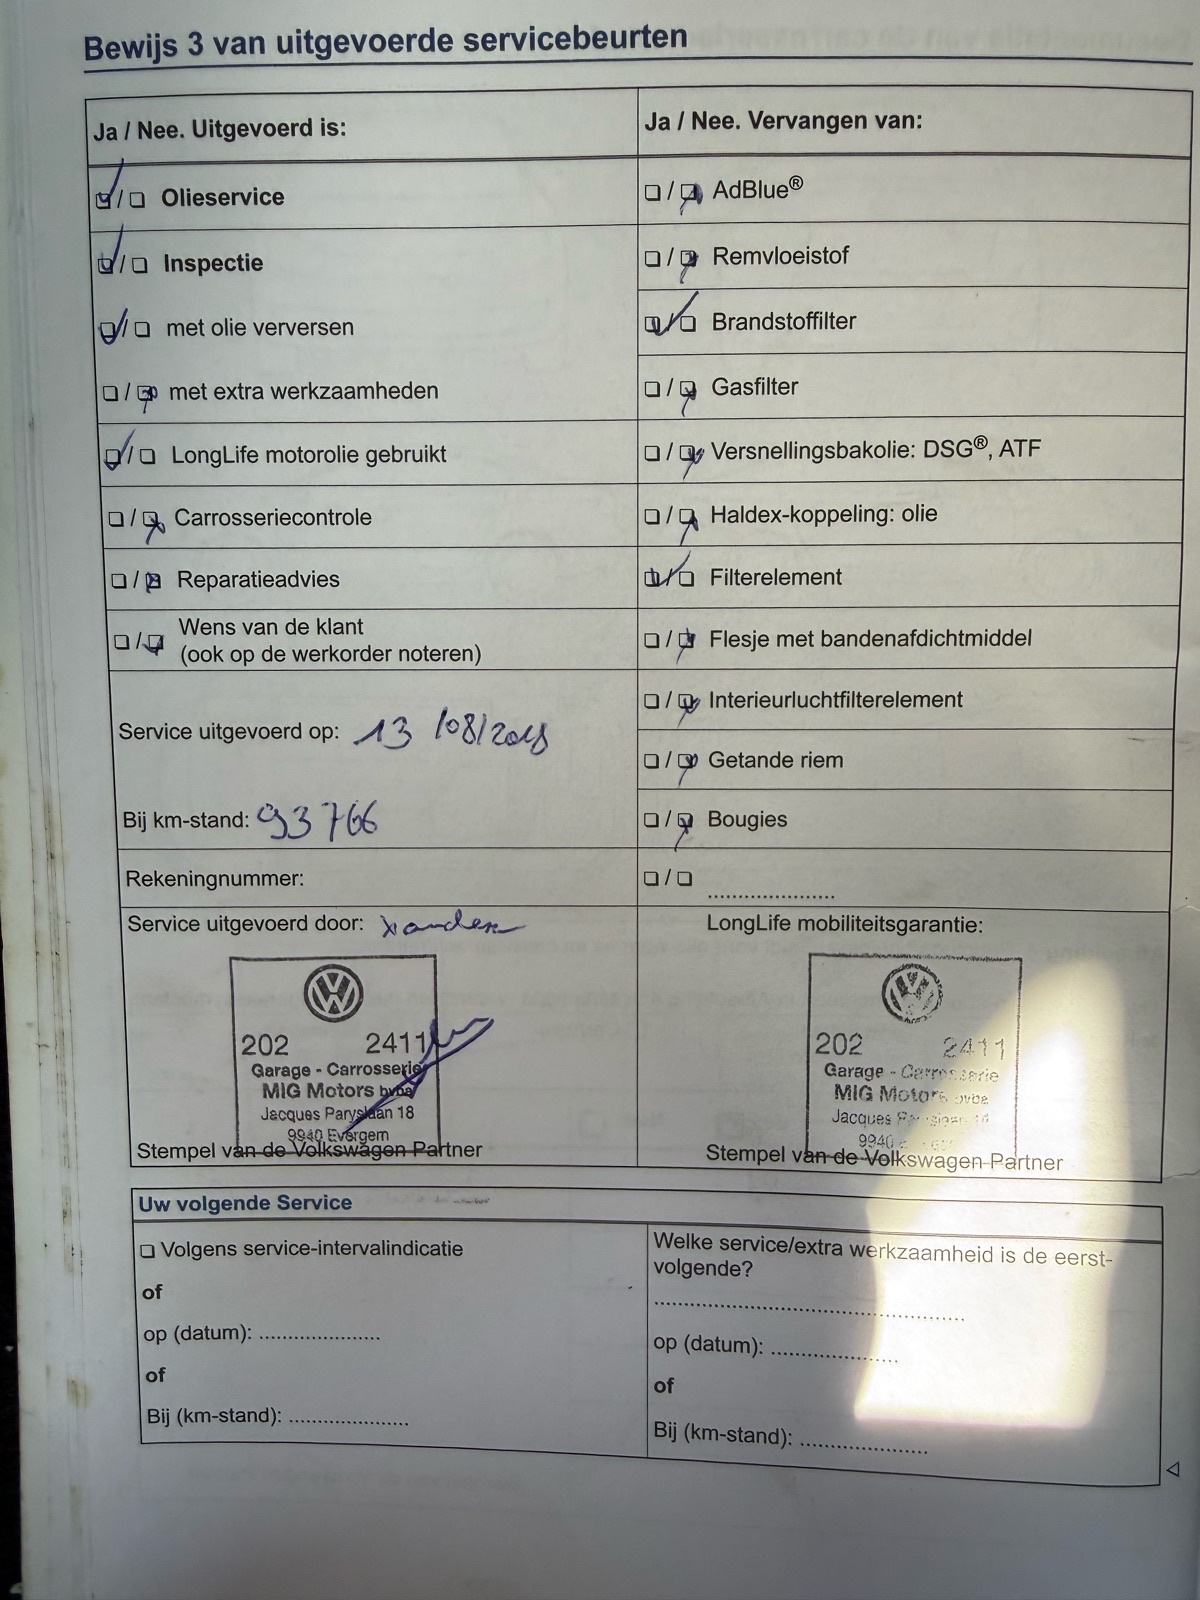 Bewijs 3 van uitgevoerde servicebeurten
Ja / Nee. Uitgevoerd is:
☑/☐ Olieservice
☑/☐ Inspectie
☑/☐ met olie verversen
☐/☑ met extra werkzaamheden
☑/☐ LongLife motorolie gebruikt
☐/☑ Carrosseriecontrole
☐/☑ Reparatieadvies
☐/☑ Wens van de klant
(ook op de werkorder noteren)
Service uitgevoerd op: 13/08/2018
Bij km-stand: 93766
Rekeningnummer:
Service uitgevoerd door: Xander
202 2411
Garage - Carrosserie
MIG Motors bvba
Jacques Paryslaan 18
9940 Evergem
Stempel van de Volkswagen Partner
Ja / Nee. Vervangen van:
☐/☑ AdBlue®
☐/☑ Remvloeistof
☑/☐ Brandstoffilter
☐/☑ Gasfilter
☐/☑ Versnellingsbakolie: DSG®, ATF
☐/☑ Haldex-koppeling: olie
☑/☐ Filterelement
☐/☑ Flesje met bandenafdichtmiddel
☐/☑ Interieurluchtfilterelement
☐/☑ Getande riem
☐/☑ Bougies
☐/☐ ....................
LongLife mobiliteitsgarantie:
202 2411
Garage - Carrosserie
MIG Motors bvba
Jacques
9940
Stempel van de Volkswagen Partner
Uw volgende Service
☐ Volgens service-intervalindicatie
of
op (datum): ....................
of
Bij (km-stand): ....................
Welke service/extra werkzaamheid is de eerst-
volgende?
..................................................
op (datum): ....................
of
Bij (km-stand): ....................